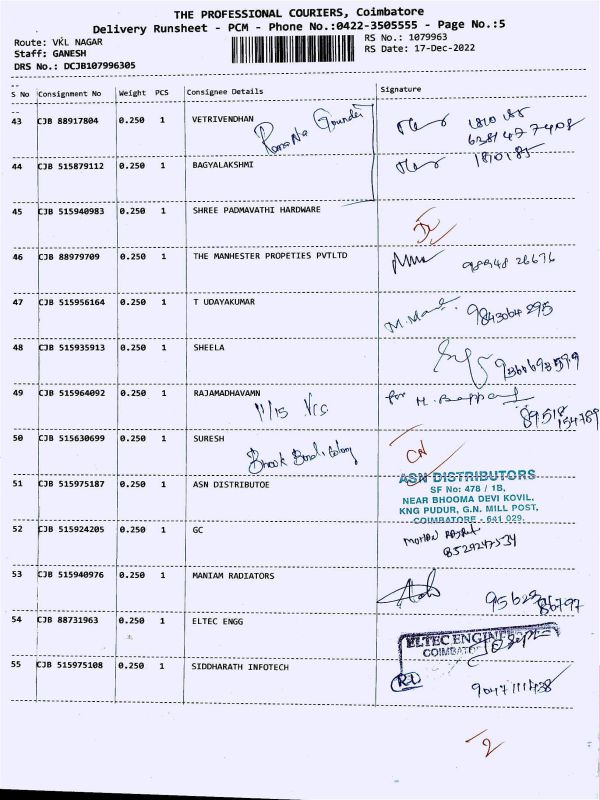 THE PROFESSIONAL COURIERS, Coimbatore
Delivery Runsheet - PCM - Phone No.:0422-3505555 - Page No.:5
Route: VKL NAGAR
Staff: GANESH
DRS No.: DCJB107996305
RS No.: 1079963
RS Date: 17-Dec-2022
S No Consignment No Weight PCS Consignee Details Signature
43 CJB 88917804 0.250 1 VETRIVENDHAN
44 CJB 515879112 0.250 1 BAGYALAKSHMI
45 CJB 515940983 0.250 1 SHREE PADMAVATHI HARDWARE
46 CJB 88979709 0.250 1 THE MANHESTER PROPETIES PVTLTD
47 CJB 515956164 0.250 1 T UDAYAKUMAR 9843064295
48 CJB 515935913 0.250 1 SHEELA
49 CJB 515964092 0.250 1 RAJAMADHAVAMN for
50 CJB 515630699 0.250 1 SURESH CN
51 CJB 515975187 0.250 1 ASN DISTRIBUTOE
ASN DISTRIBUTORS
SF No: 478 / 1B,
NEAR BHOOMA DEVI KOVIL,
KNG PUDUR, G.N. MILL POST,
COIMBATORE - 641 029.
52 CJB 515924205 0.250 1 GC
8529247534
53 CJB 515940976 0.250 1 MANIAM RADIATORS
54 CJB 88731963 0.250 1 ELTEC ENGG
ELTEC ENGINE
COIMBATO
55 CJB 515975108 0.250 1 SIDDHARATH INFOTECH
2